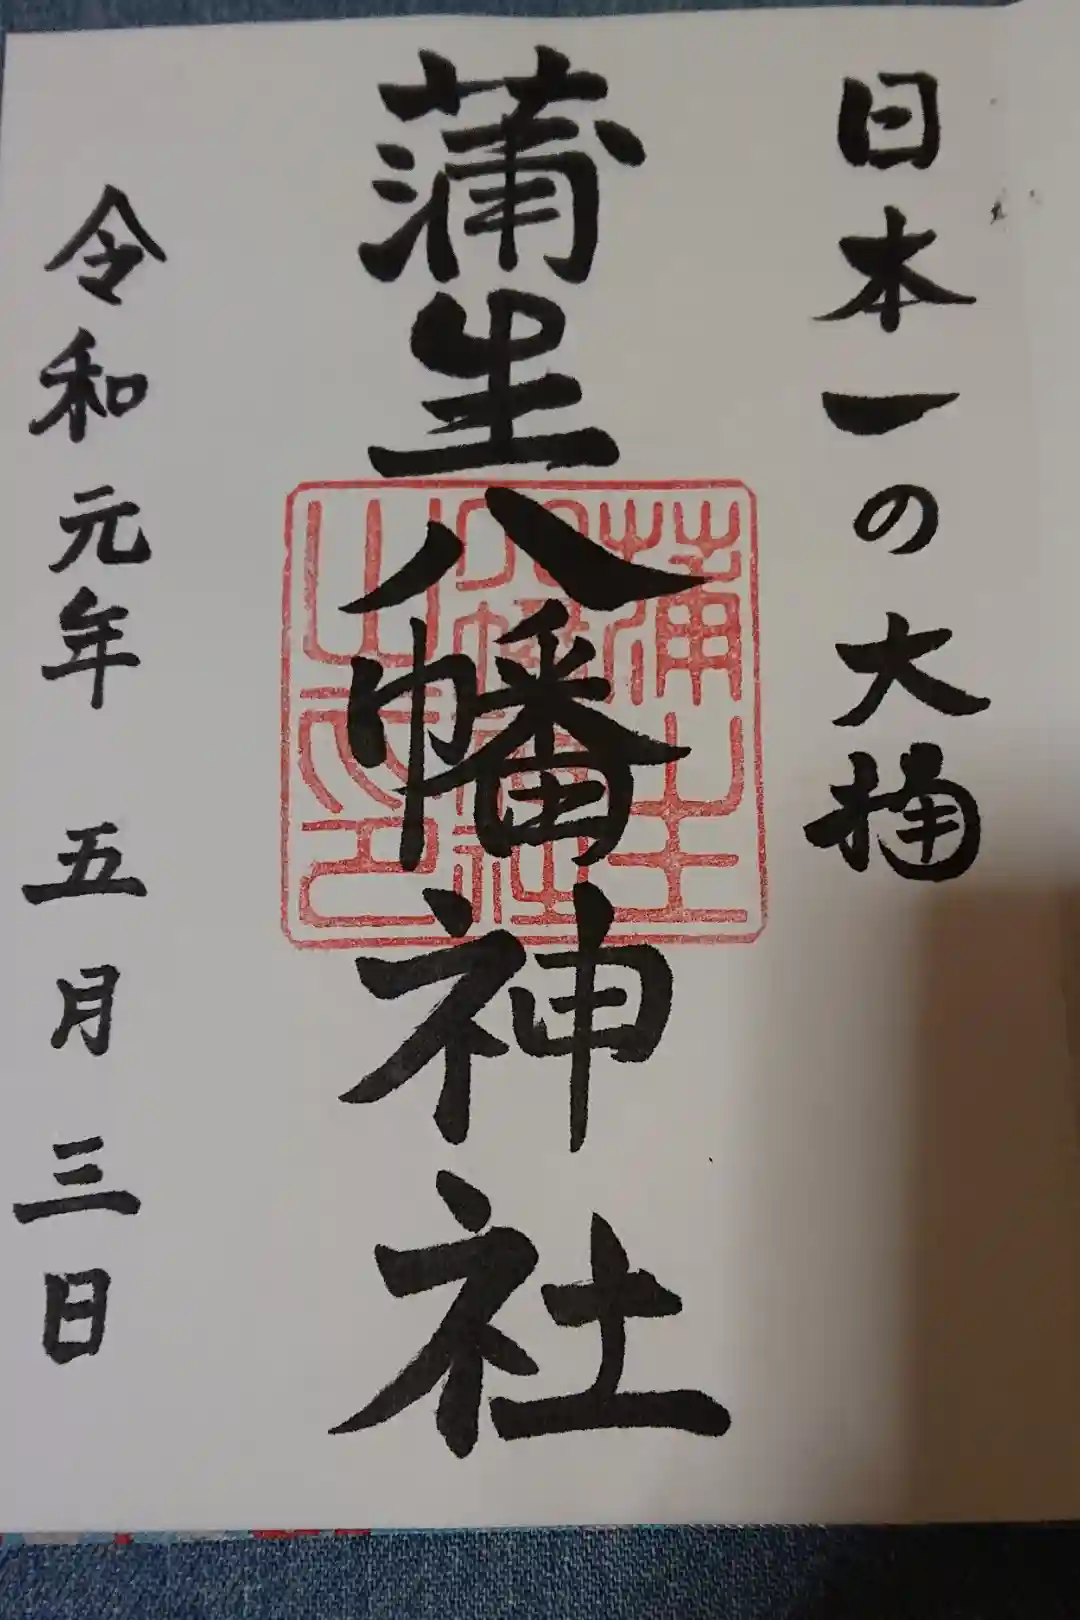 日本一の大楠
蒲生八幡神社
蒲生
八幡神社
之印
令和元年 五月三日